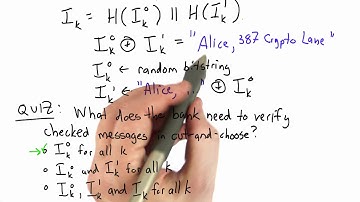 I_k = H(I_k^0) || H(I_k^1)
I_k^0 ⊕ I_k^1 = "Alice, 387 Crypto Lane"
I_k^0 ← random bitstring
I_k^1 ← "Alice, ..." ⊕ I_k^0
QUIZ: What does the bank need to verify
checked messages in cut-and-choose?
→ o I_k^0 for all k
o I_k^0 and I_k^1 for all k
o I_k^0, I_k^1 and I_k for all k